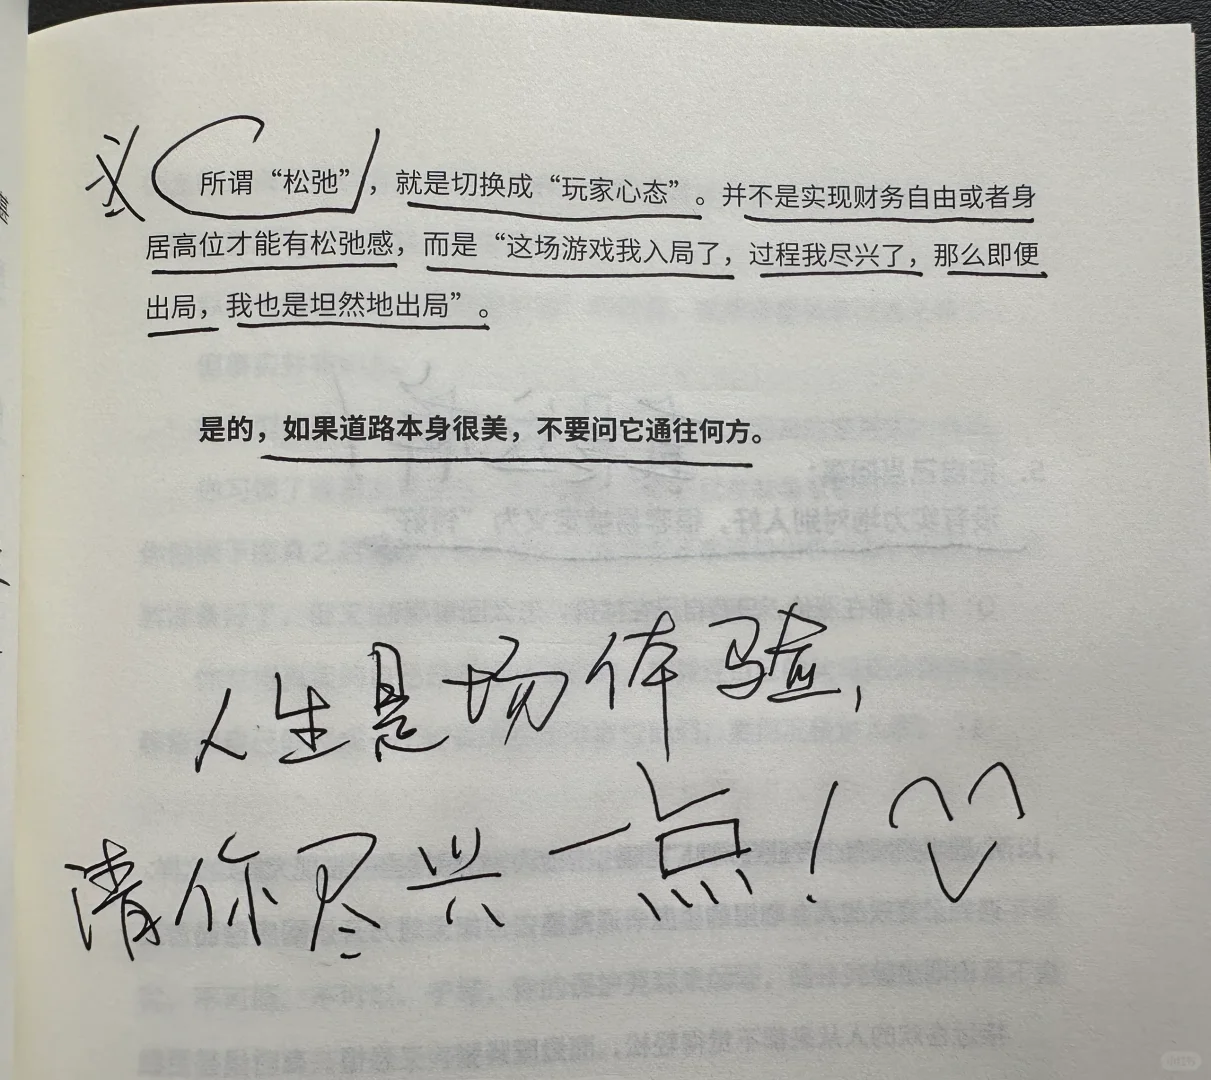 所谓“松弛”，就是切换成“玩家心态”。并不是实现财务自由或者身
居高位才能有松弛感，而是“这场游戏我入局了，过程我尽兴了，那么即便
出局，我也是坦然地出局”。
是的，如果道路本身很美，不要问它通往何方。
人生是场体验，
请你尽兴一点！
小红书